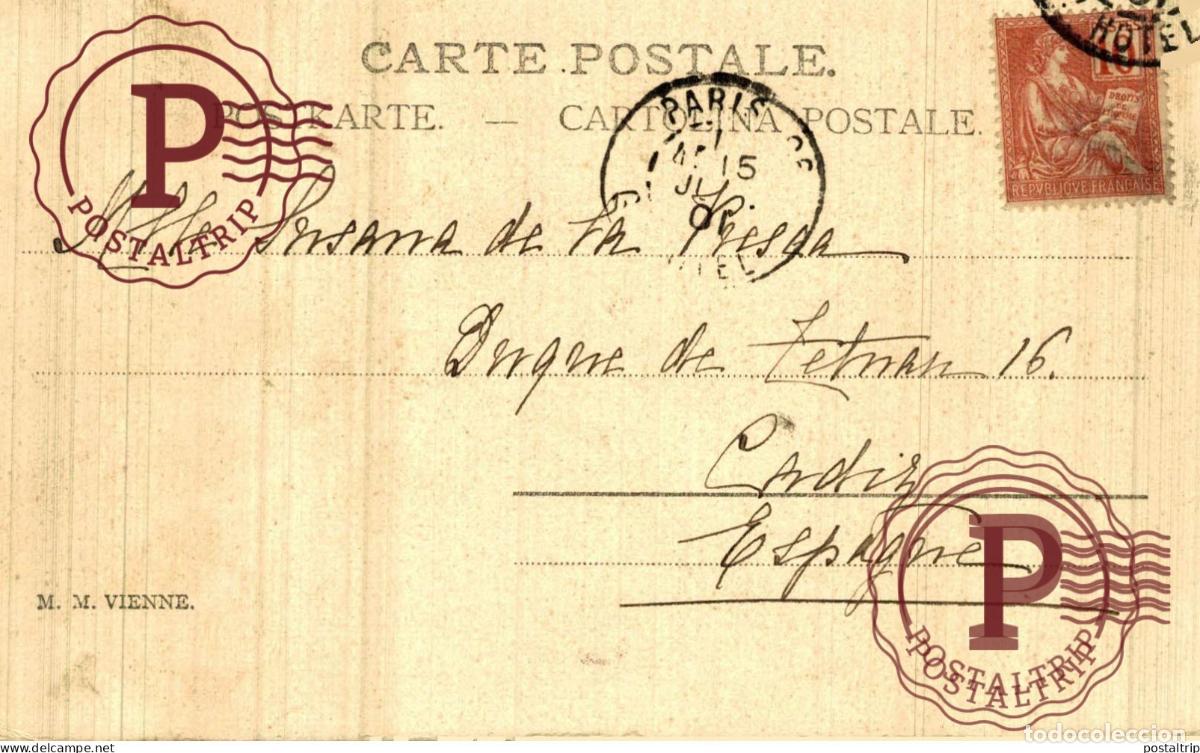 CARTE POSTALE.
POSTKARTE. — CARTOLINA POSTALE.
HOTEL
10
DROITS DE
REPVBLIQVE FRANÇAISE
PARIS
15
HOTEL
Mlle Susana de la Riesga
Duque de Tetuan 16.
Cadiz
Espagne
M. M. VIENNE.
P
POSTALTRIP
P
POSTALTRIP
POSTALTRIP
todocoleccion
www.delcampe.net
postaltrip